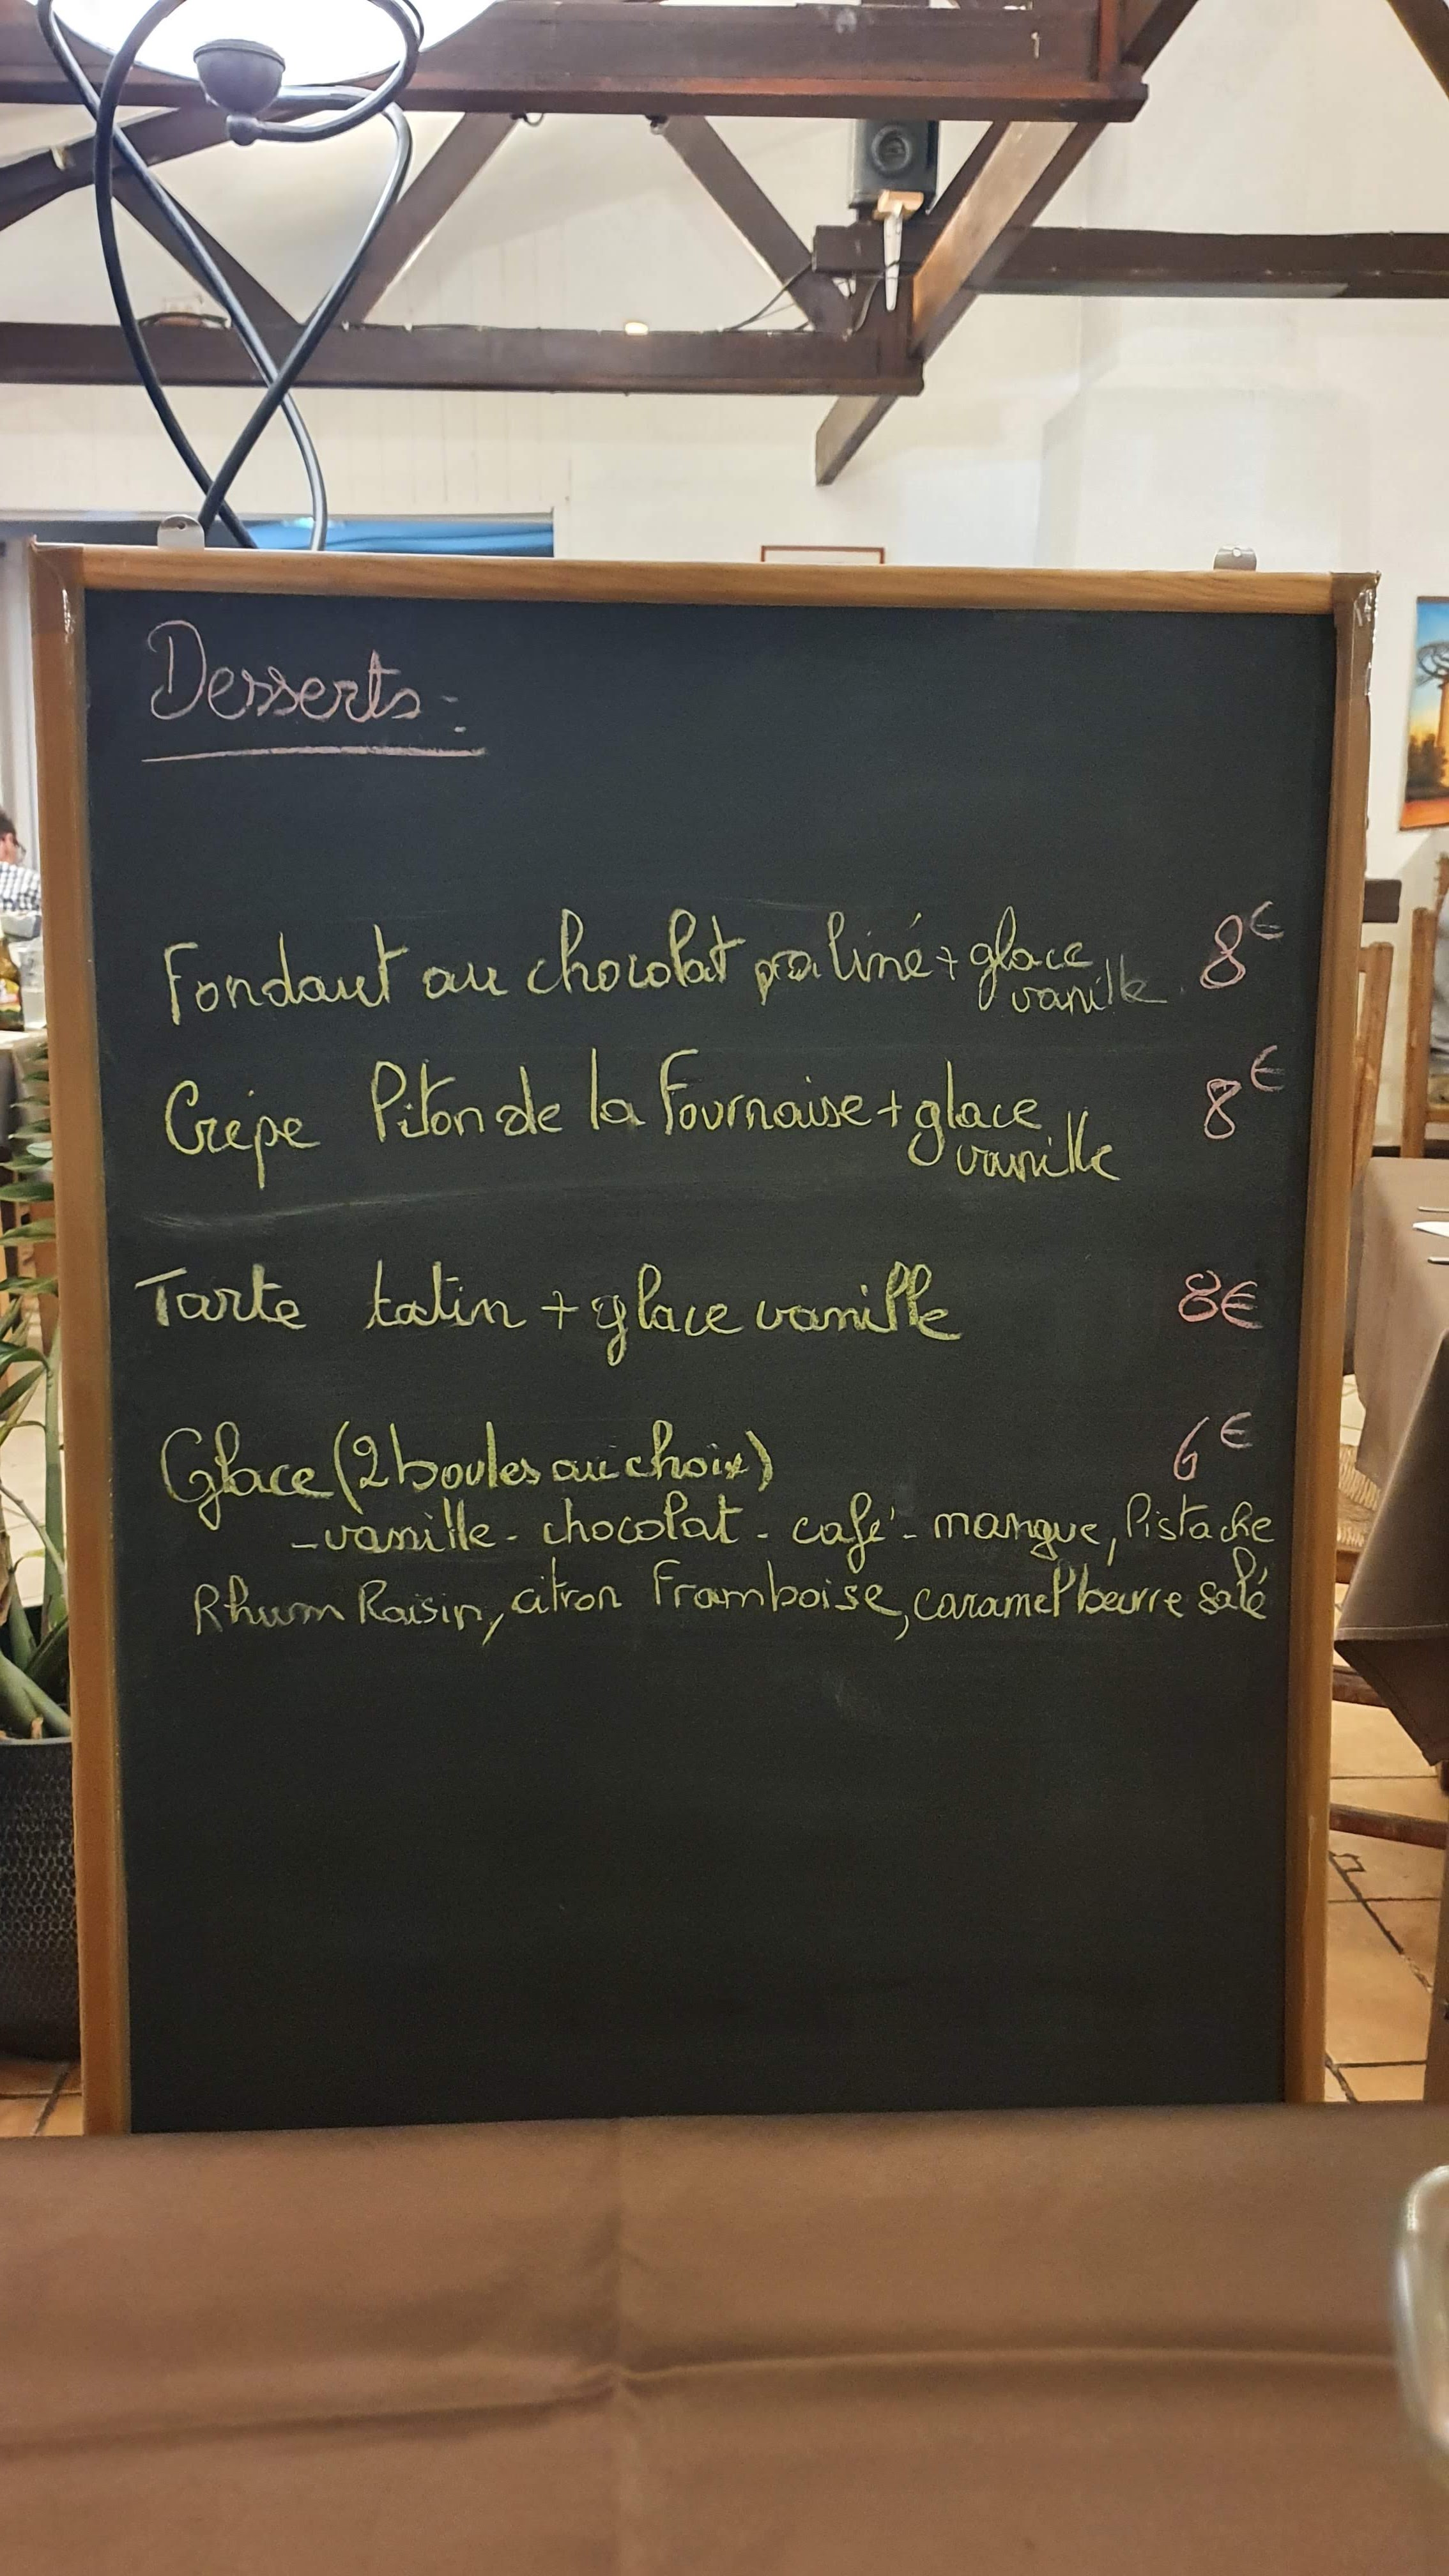 Desserts:
Fondant au chocolat praliné + glace
vanille
8€
Crêpe Piton de la Fournaise + glace
vanille
8€
Tarte tatin + glace vanille 8€
Glace (2 boules au choix) 6€
- vanille - chocolat - café - mangue, Pistache
Rhum Raisin, citron Framboise, caramel beurre salé